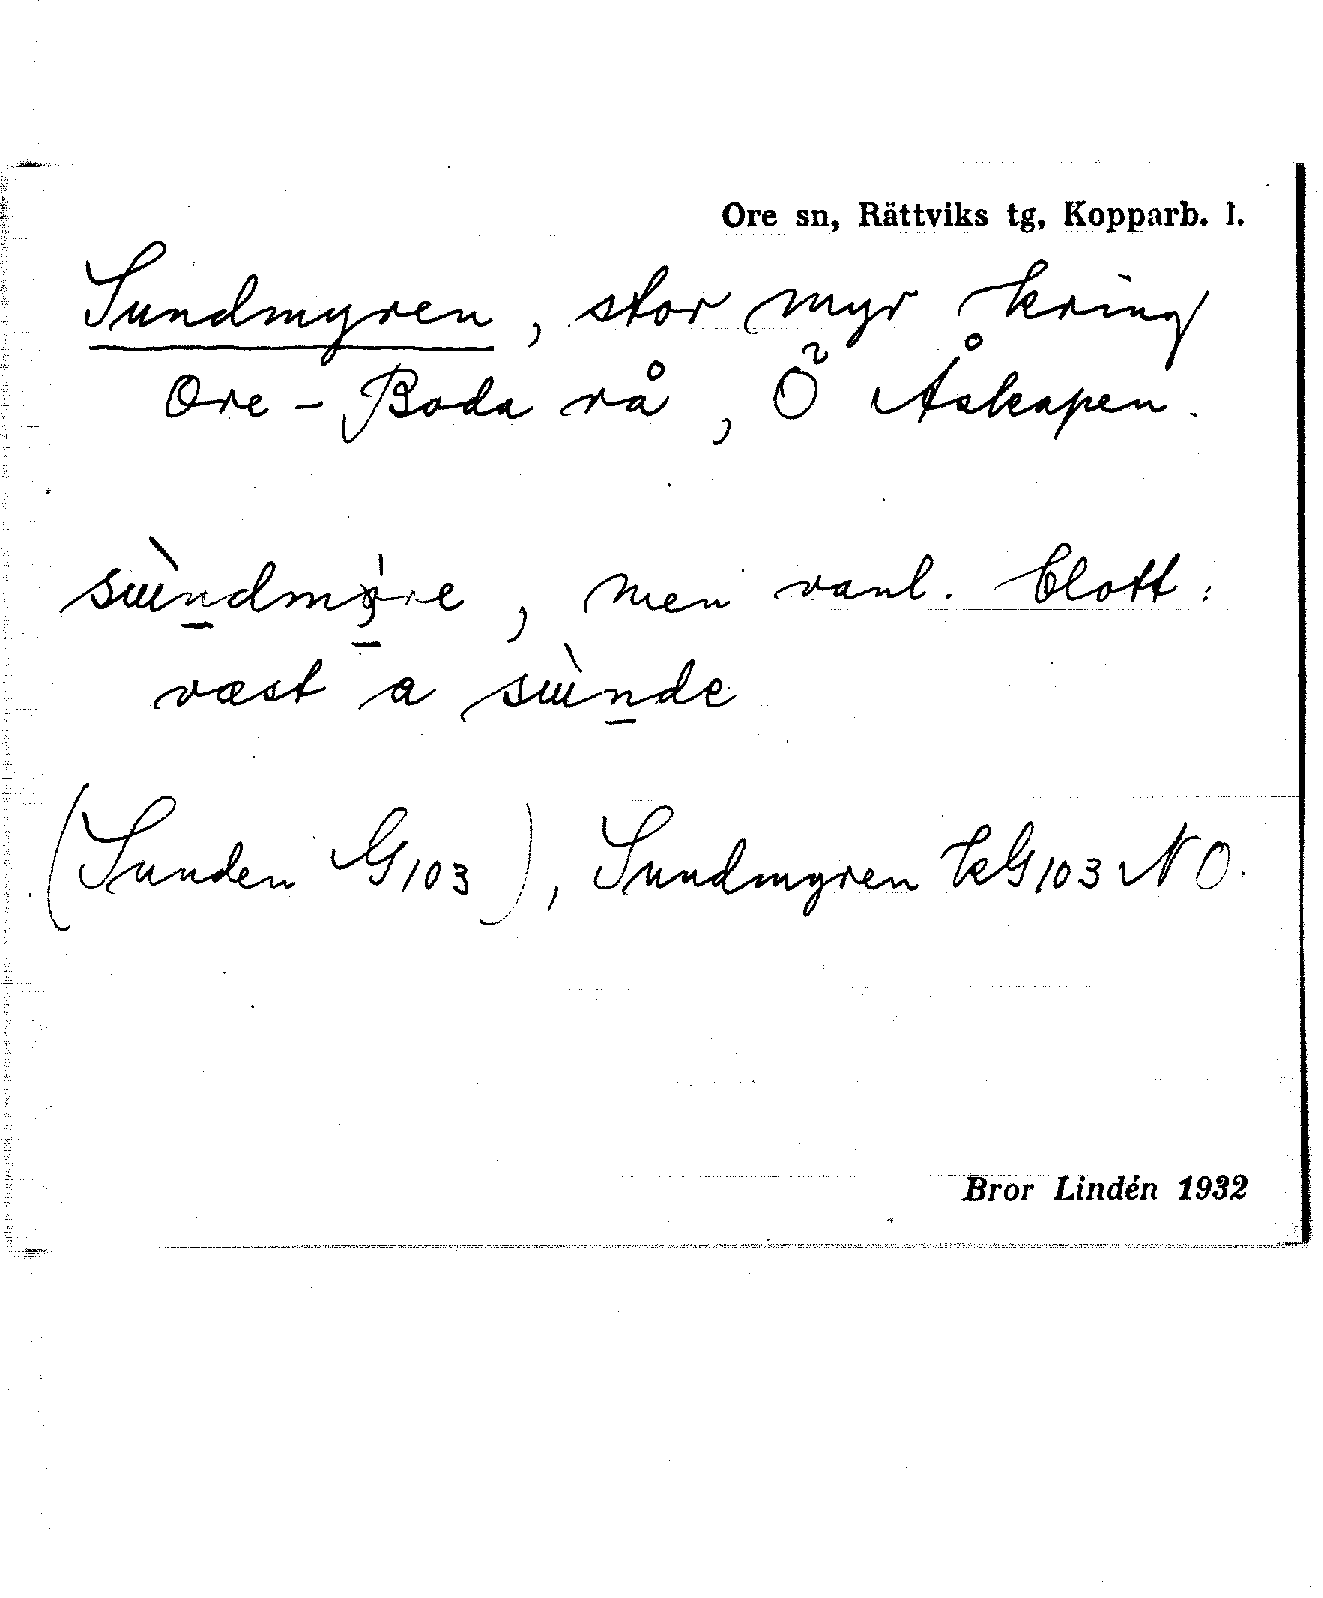 Ore sn, Rättviks tg, Kopparb. l.
Sundmyren, stor myr kring
Ore-Boda rå, Ö Åskapen.
men vanl. blott:
væst a
(Sunden G103), Sundmyren kG103 NO.
Bror Lindén 1932